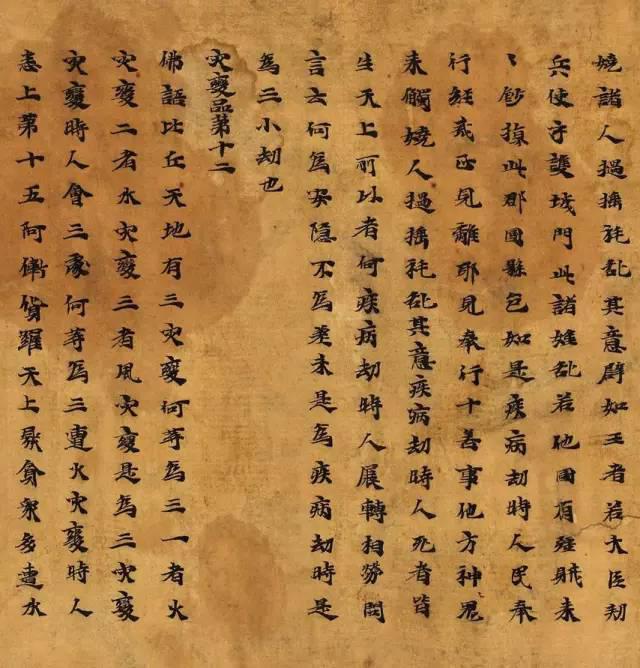 嬈諸人撾捶秏亂其意辟如王者若大臣勑
兵使守護城門此諸嬈亂若他國有強賊来
〻鈔掠此郡國縣邑如是疾病劫時人民奉
行經戒正見離耶見奉行十善事他方神鬼
来觸嬈人撾捶秏亂其意疾病劫時人死者皆
生天上所以者何疾病劫時人展轉相勞問
言云何為安隱不為差未是為疾病劫時是
為三小劫也
災變品第十二
佛語比丘天地有三災變何等為三一者火
災變二者水災變三者風災變是為三災變
災變時人會三處何等為三遭火災變時人
悉上第十五阿衛貨羅天上聚會眾多遭水